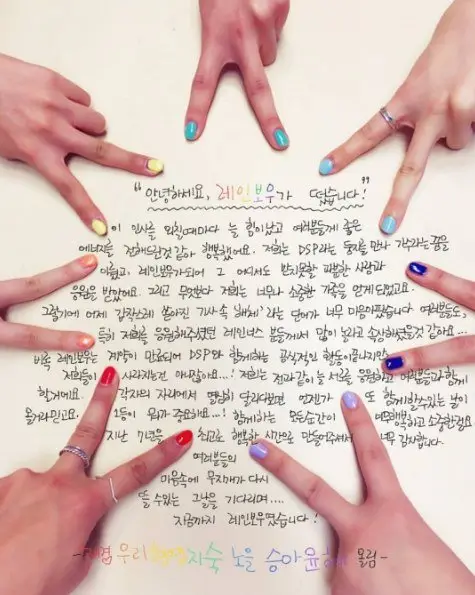 "안녕하세요, 레인보우가 떴습니다!"
이 인사를 외칠때마다 늘 힘이났고 여러분들께 좋은
에너지를 전해드린것 같아 행복했어요. 저희는 DSP라는 둥지를 만나 가수라는꿈을
이뤘고, 레인보우가되어 그 어디서도 받지못할 과분한 사랑과
응원을 받았어요. 그리고 무엇보다 저희는 너무나 소중한 가족을 얻게되었고요.
그렇기에 어제 갑작스레 쏟아진 기사 속 '해체'라는 단어가 너무 마음아팠습니다 여러분들도,
특히 저희를 응원해주셨던 레인너스 분들께서 많이 놀라고 속상하셨을것 같아요...
비록 레인보우는 계약이 만료되어 DSP와 함께하는 공식적인 활동이끝나지만
저희들이 사라지는건 아니잖아요...! 저희는 전과같이 늘 서로를 응원하고 여러분들과함께
할거예요. 각자의 자리에서 열심히 달리다보면 언젠가 또 함께할수있는 날이
올거라믿고요. 1등이 뭐가 중요하요...! 함께하는 모든순간이 너무행복하고 소중한걸요.
지난 7년을 최고로 행복한 시간으로 만들어주셔서 너무 감사합니다.
여러분들의
마음속에 무지개가 다시
뜰 수있는 그날을 기다리며....
지금까지 레인보우였습니다!
- 재경 우리 현영 지숙 노을 승아 윤혜 올림 -